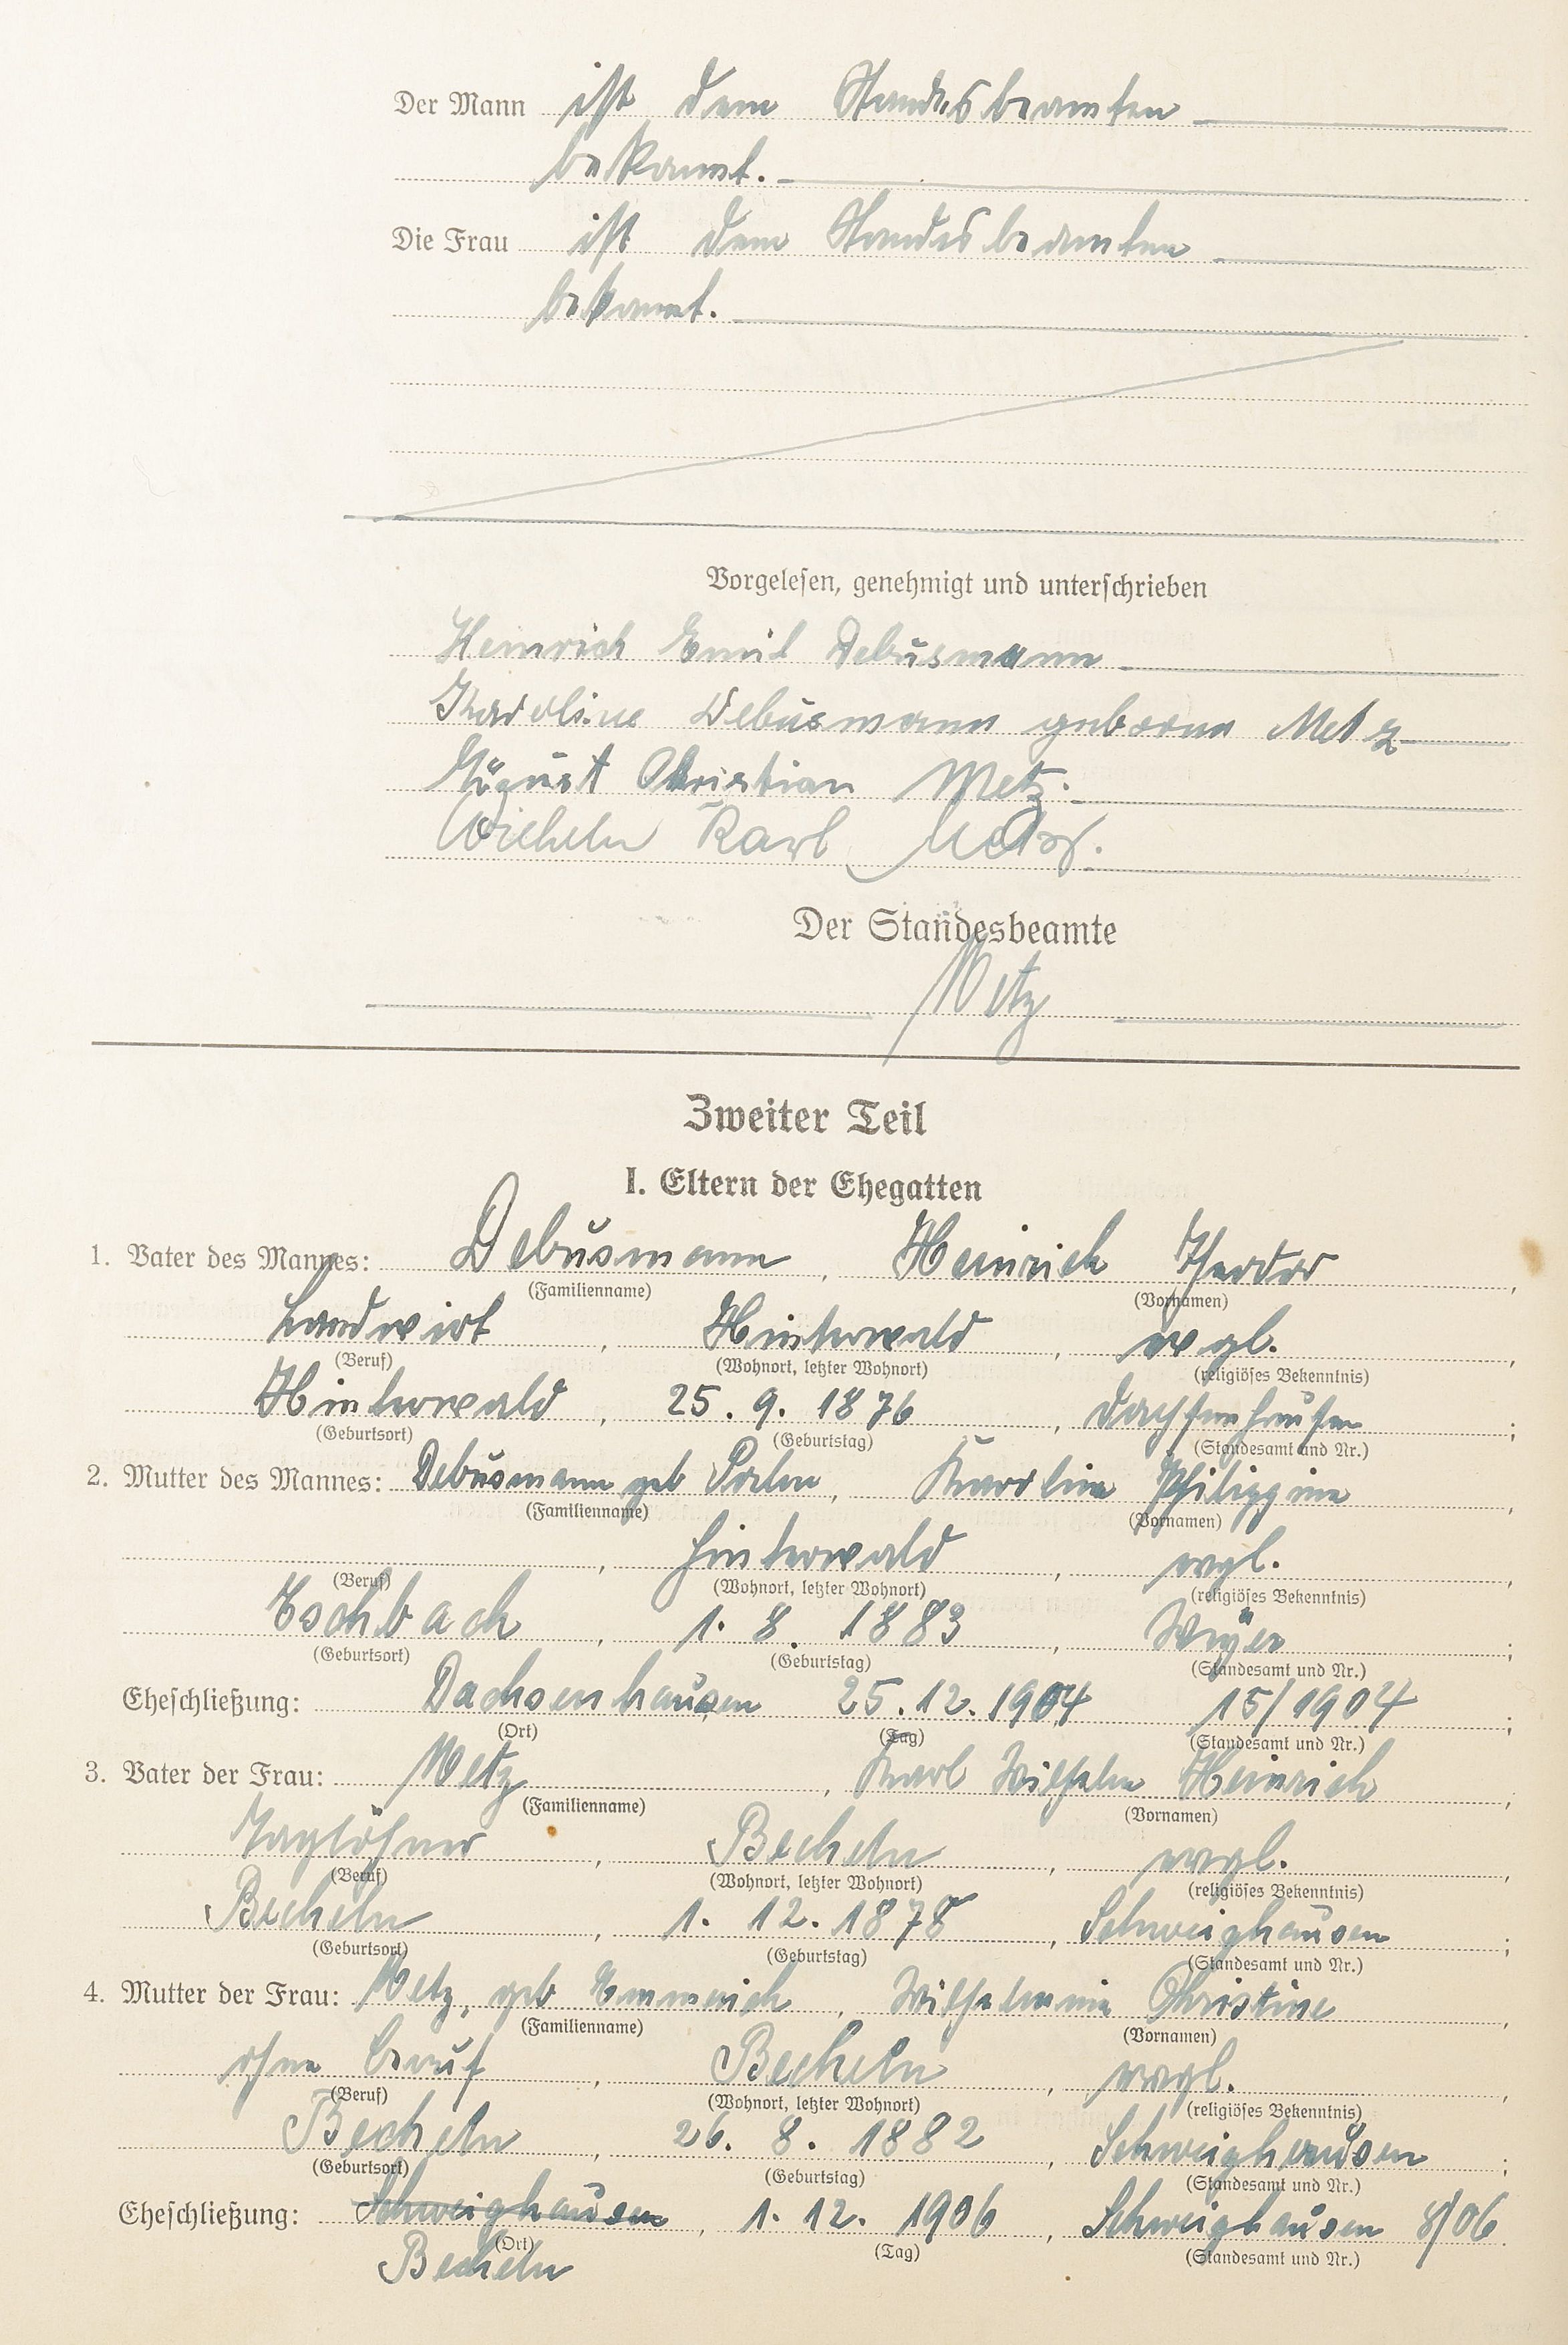 Der Mann ist dem Standesbeamten
bekannt.
Die Frau ist dem Standesbeamten
bekannt.
Vorgelesen, genehmigt und unterschrieben
Heinrich Emil Debusmann
Karoline Debusmann geborene Metz
August Christian Metz.
Wilhelm Karl
Der Standesbeamte
Metz
Zweiter Teil
I. Eltern der Ehegatten
1. Vater des Mannes: Debusmann, Heinrich Theodor,
(Familienname) (Vornamen)
Landwirt, Hinterwald, evgl.,
(Beruf) (Wohnort, letzter Wohnort) (religiöses Bekenntnis)
Hinterwald, 25. 9. 1876, Dachsenhausen;
(Geburtsort) (Geburtstag) (Standesamt und Nr.)
2. Mutter des Mannes: Debusmann geb, Karoline Philippine,
(Familienname) (Vornamen)
, Hinterwald, evgl.,
(Beruf) (Wohnort, letzter Wohnort) (religiöses Bekenntnis)
Eschbach, 1. 8. 1883, Weyer;
(Geburtsort) (Geburtstag) (Standesamt und Nr.)
Eheschließung: Dachsenhausen 25. 12. 1904 15/1904;
(Ort) (Tag) (Standesamt und Nr.)
3. Vater der Frau: Metz, Karl Wilhelm Heinrich,
(Familienname) (Vornamen)
Taglöhner, Becheln, evgl.,
(Beruf) (Wohnort, letzter Wohnort) (religiöses Bekenntnis)
Becheln, 1. 12. 1878, Schweighausen;
(Geburtsort) (Geburtstag) (Standesamt und Nr.)
4. Mutter der Frau: Metz, geb Emmerich, Wilhelmine Christine,
(Familienname) (Vornamen)
ohne Beruf, Becheln, evgl.,
(Beruf) (Wohnort, letzter Wohnort) (religiöses Bekenntnis)
Becheln, 26. 8. 1882, Schweighausen;
(Geburtsort) (Geburtstag) (Standesamt und Nr.)
Eheschließung: Schweighausen, 1. 12. 1906, Schweighausen 8/06.
(Ort) (Tag) (Standesamt und Nr.)
Becheln